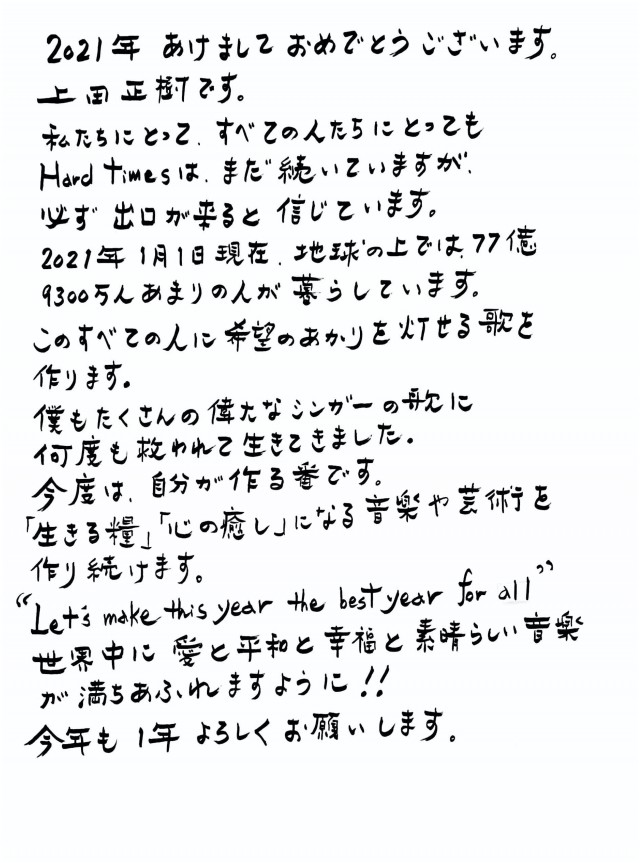 2021年 あけまして おめでとう ございます。
上田 正樹です。
私たちにとって、すべての人たちに とっても
Hard timesは、まだ 続いていますが、
必ず 出口が来ると 信じています。
2021年 1月1日 現在、地球の上では、77億
9300万人あまりの人が 暮らしています。
このすべての人に 希望のあかりを 灯せる 歌を
作ります。
僕もたくさんの 偉大なシンガーの 歌に
何度も 救われて 生きてきました。
今度は、自分が 作る番です。
「生きる糧」「心の癒し」になる 音楽や 芸術を
作り続けます。
“Let's make this year the best year for all”
世界中に 愛と平和と 幸福と 素晴らしい 音楽
が 満ちあふれますように!!
今年も 1年 よろしく お願いします。